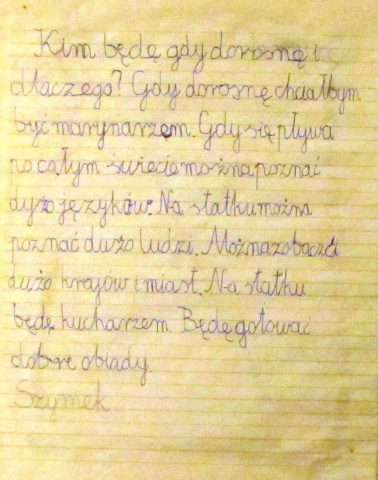 Kim będę gdy dorosnę i
dlaczego? Gdy dorosnę chciałbym
być marynarzem. Gdy się pływa
po całym świecie można poznać
dużo języków. Na statku można
poznać dużo ludzi. Można zobaczyć
dużo krajów i miast. Na statku
będę kucharzem. Będę gotować
dobre obiady.
Szymek